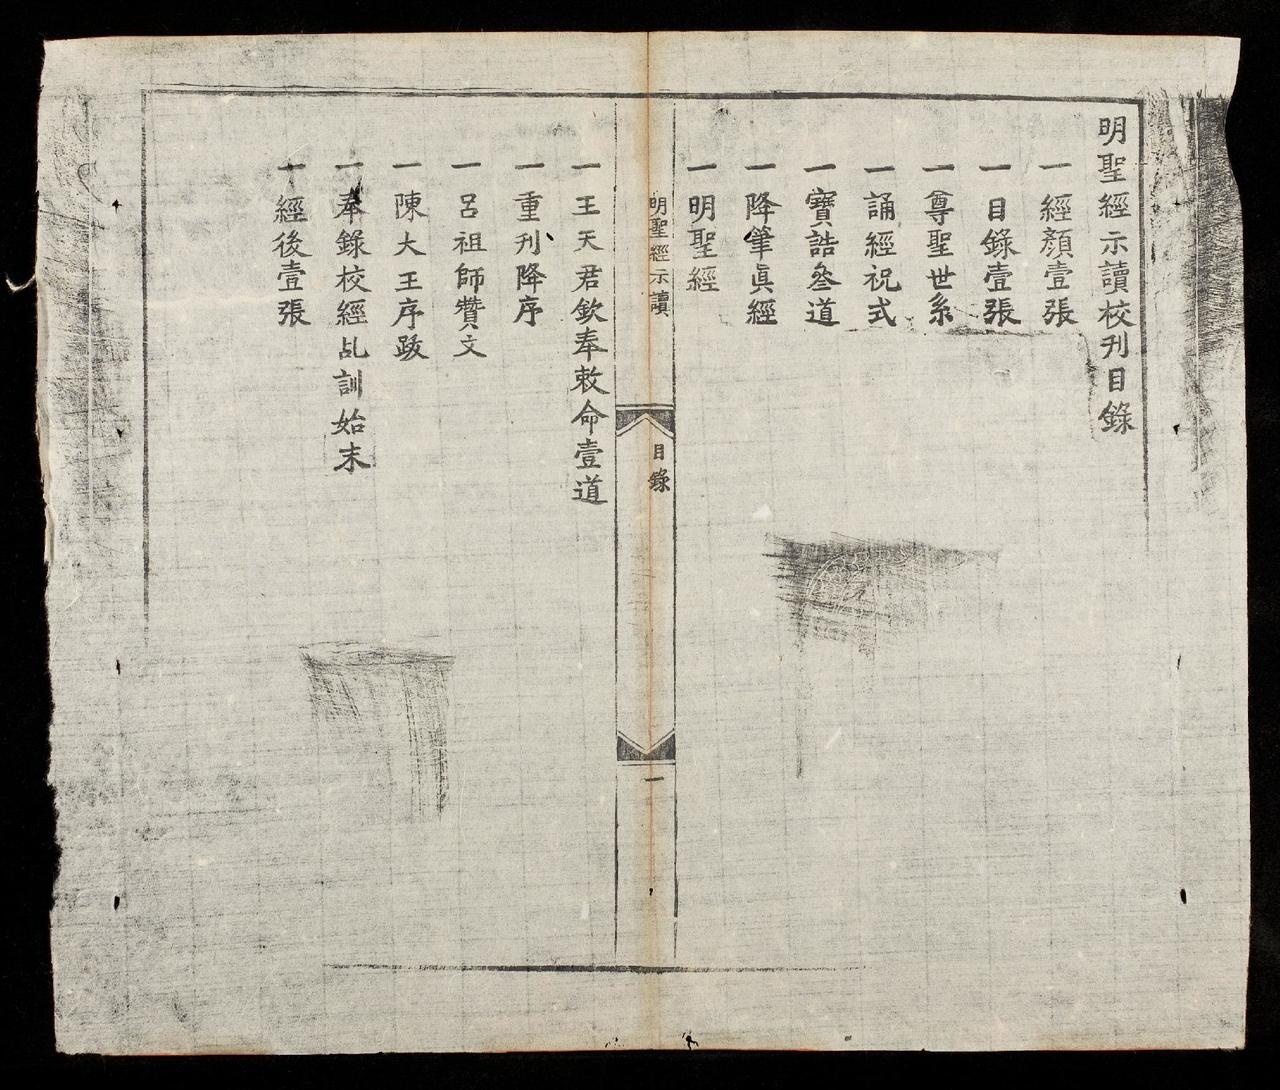 明聖經示讀校刋目錄
一經顏壹張
一目錄壹張
一尊聖世系
一誦經祝式
一寶誥叄道
一降筆眞經
一明聖經
明聖經示讀
目錄
一
一王天君欽奉敕命壹道
一重刋降序
一呂祖師贊文
一陳大王序跋
一奉錄校經乩訓始末
一經後壹張